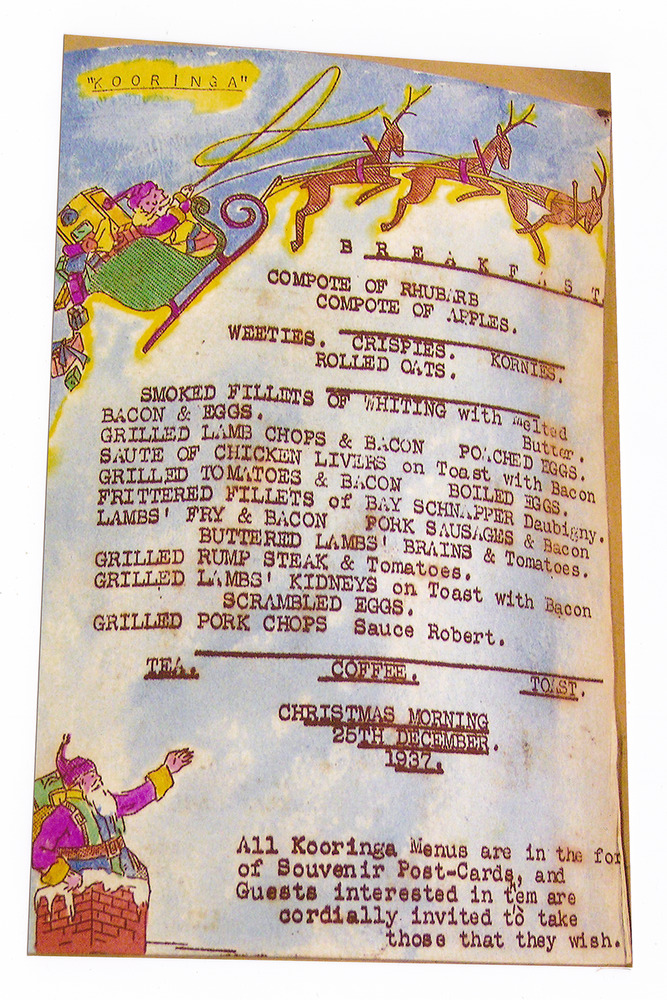 "KOORINGA"
BREAKFAST
COMPOTE OF RHUBARB
COMPOTE OF APPLES.
WEETIES. CRISPIES. KORNIES.
ROLLED OATS.
SMOKED FILLETS OF WHITING with Melted
Butter.
BACON & EGGS.
GRILLED LAMB CHOPS & BACON POACHED EGGS.
SAUTE OF CHICKEN LIVERS on Toast with Bacon
GRILLED TOMATOES & BACON BOILED EGGS.
FRITTERED FILLETS of BAY SCHNAPPER Daubigny.
LAMBS' FRY & BACON PORK SAUSAGES & Bacon
BUTTERED LAMBS' BRAINS & Tomatoes.
GRILLED RUMP STEAK & Tomatoes.
GRILLED LAMBS' KIDNEYS on Toast with Bacon
SCRAMBLED EGGS.
GRILLED PORK CHOPS Sauce Robert.
TEA. COFFEE. TOAST.
CHRISTMAS MORNING
25TH DECEMBER.
1937.
All Kooringa Menus are in the for
of Souvenir Post-Cards, and
Guests interested in t'em are
cordially invited to take
those that they wish.